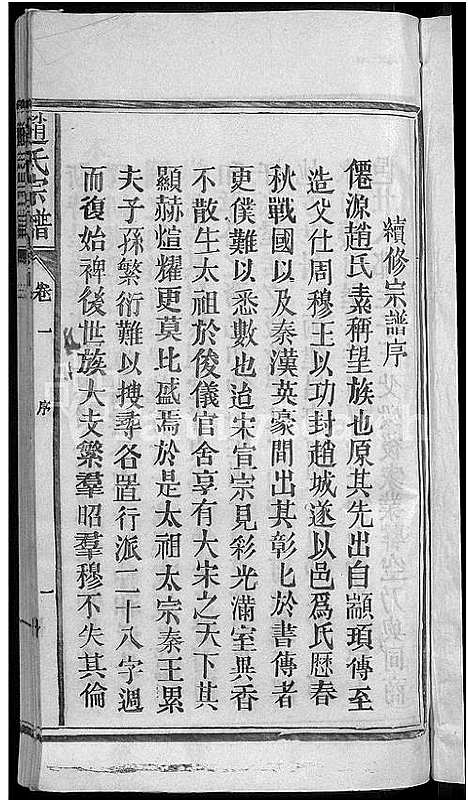 續修宗譜序
僊源趙氏素稱望族也原其先出自顓頊傳至
造父仕周穆王以功封趙城遂以邑爲氏歷春
秋戰國以及秦漢英豪間出其彰匕於書傳者
更僕難以悉數也迨宋宣宗見彩光滿室異香
不散生太祖於俊儀官舍享有大宋之天下其
顯赫煊耀更莫比盛焉於是太祖太宗秦王累
夫子孫繁衍難以搜尋各置行派二十八字週
而復始裨後世族大支繁羣昭羣穆不失其倫
趙氏宗譜
卷一
序
一